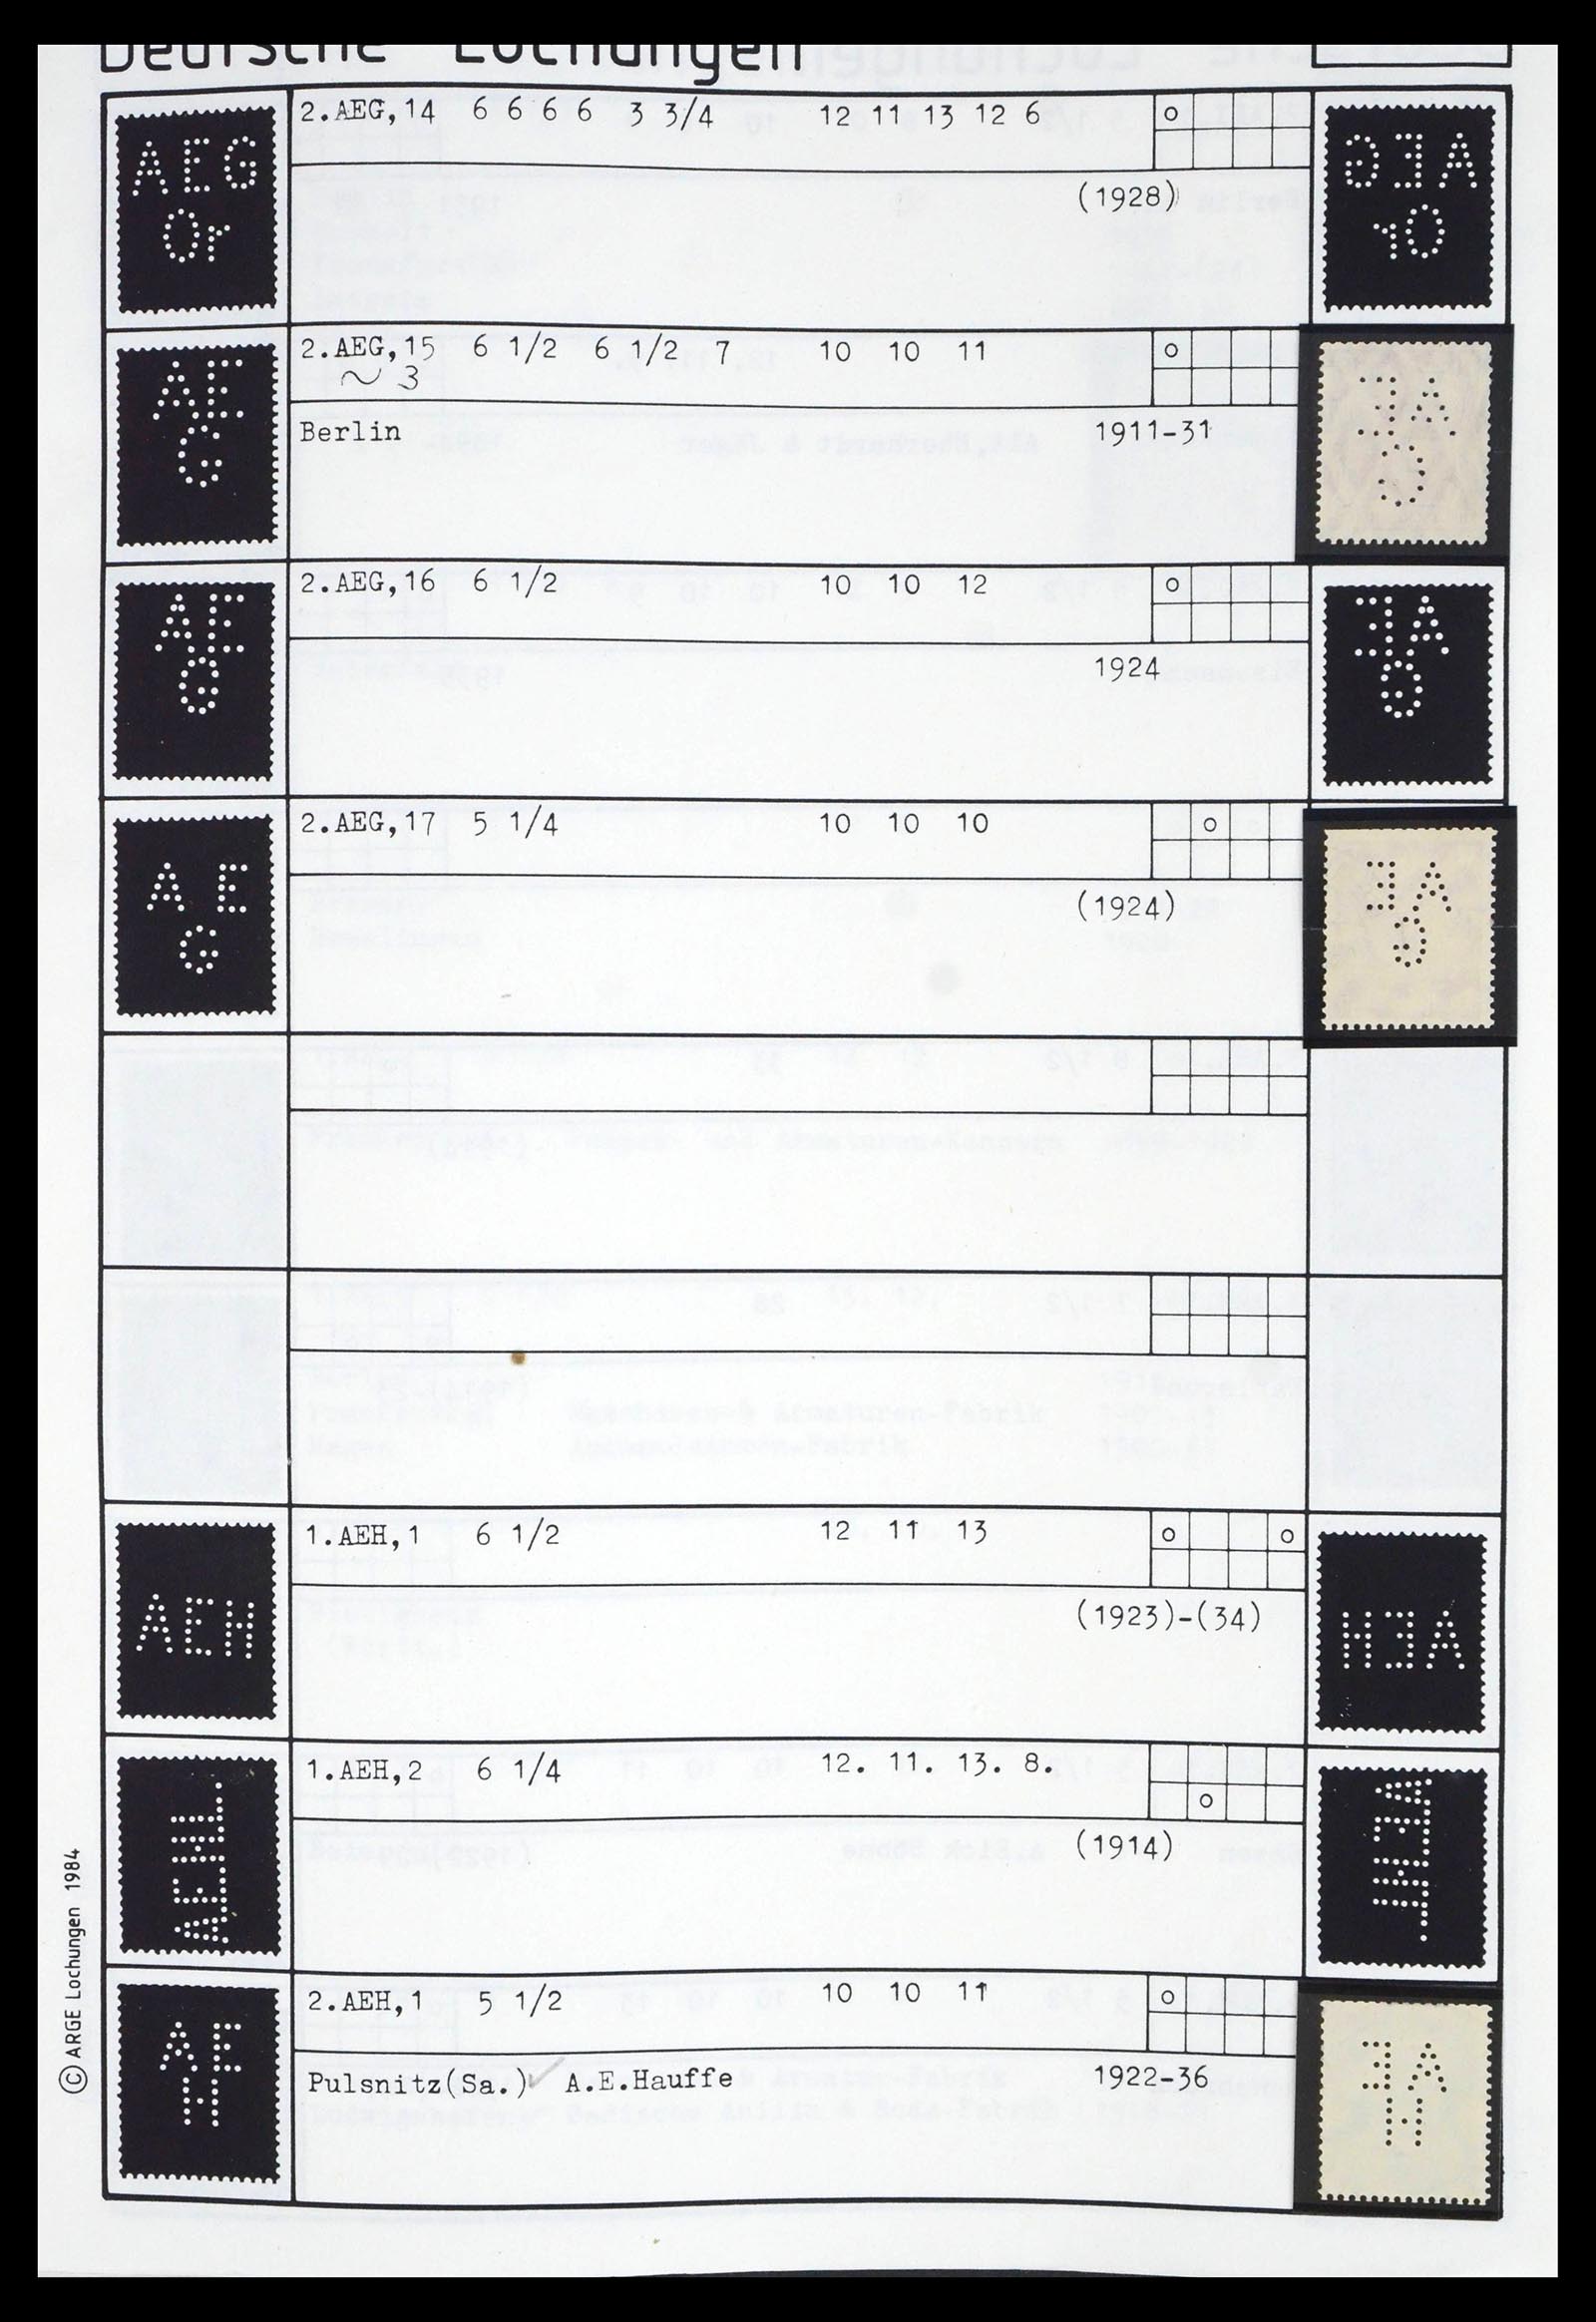 Deutsche Lochungen
AEG
Or
2.AEG,14 6 6 6 6 3 3/4 12 11 13 12 6 o
(1928)
AEG
Or
AE
G
2.AEG,15 6 1/2 6 1/2 7 10 10 11 o
~ 3
Berlin 1911-31
AE
G
AE
G
2.AEG,16 6 1/2 10 10 12 o
1924
AE
G
A E
G
2.AEG,17 5 1/4 10 10 10 o
(1924)
AE
G
AEH
1.AEH,1 6 1/2 12 11 13 o o
(1923)-(34)
AEH
1.AEH,2 6 1/4 12. 11. 13. 8. o
(1914)
AE
H
2.AEH,1 5 1/2 10 10 11 o
Pulsnitz(Sa.) A.E.Hauffe 1922-36
AE
H
© ARGE Lochungen 1984